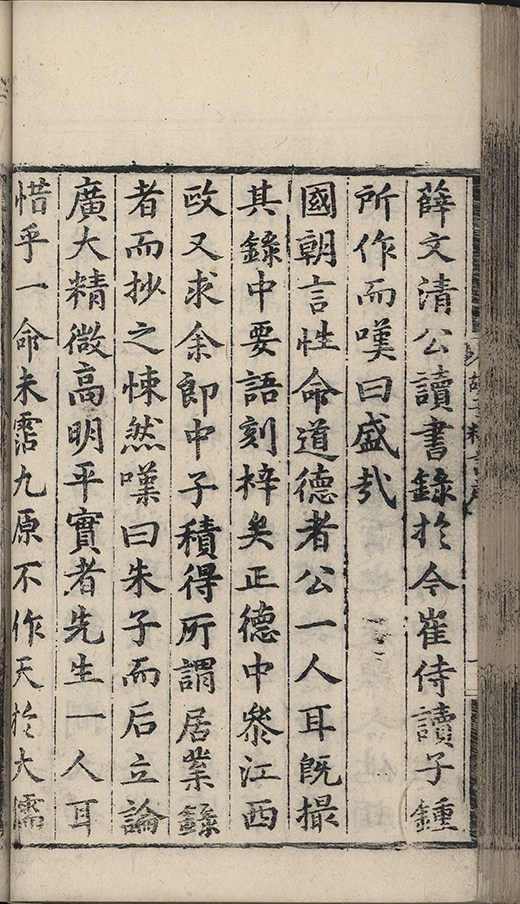 薛文清公讀書錄於今崔侍讀子鍾
所作而嘆曰盛哉
國朝言性命道德者公一人耳旣撮
其錄中要語刻梓矣正德中叅江西
政又求余郎中子積得所謂居業錄
者而抄之悚然嘆曰朱子而后立論
廣大精微高明平實者先生一人耳
惜乎一命未霑九原不作天於大儒